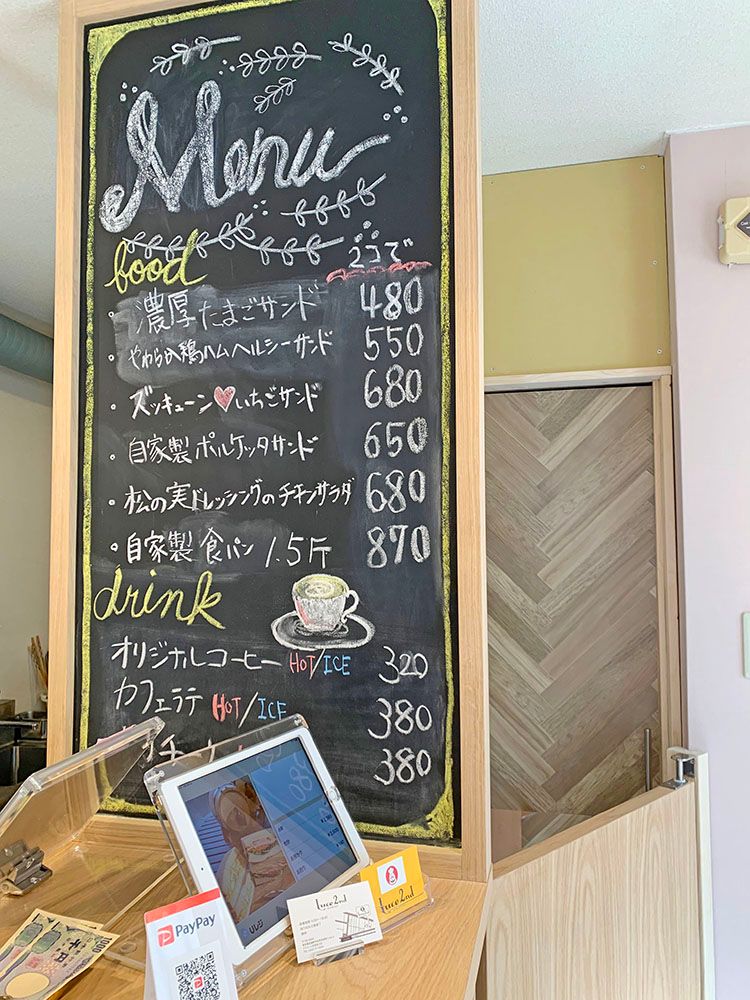 Menu
food
2コで
濃厚たまごサンド 480
やわらか鶏ハムヘルシーサンド 550
ズッキューン♥いちごサンド 680
自家製ポルケッタサンド 650
松の実ドレッシングのチキンサラダ 680
自家製食パン 1.5斤 870
drink
オリジナルコーヒー HOT/ICE 320
カフェラテ HOT/ICE 380
380
PayPay
luco 2nd
luco 2nd
1000